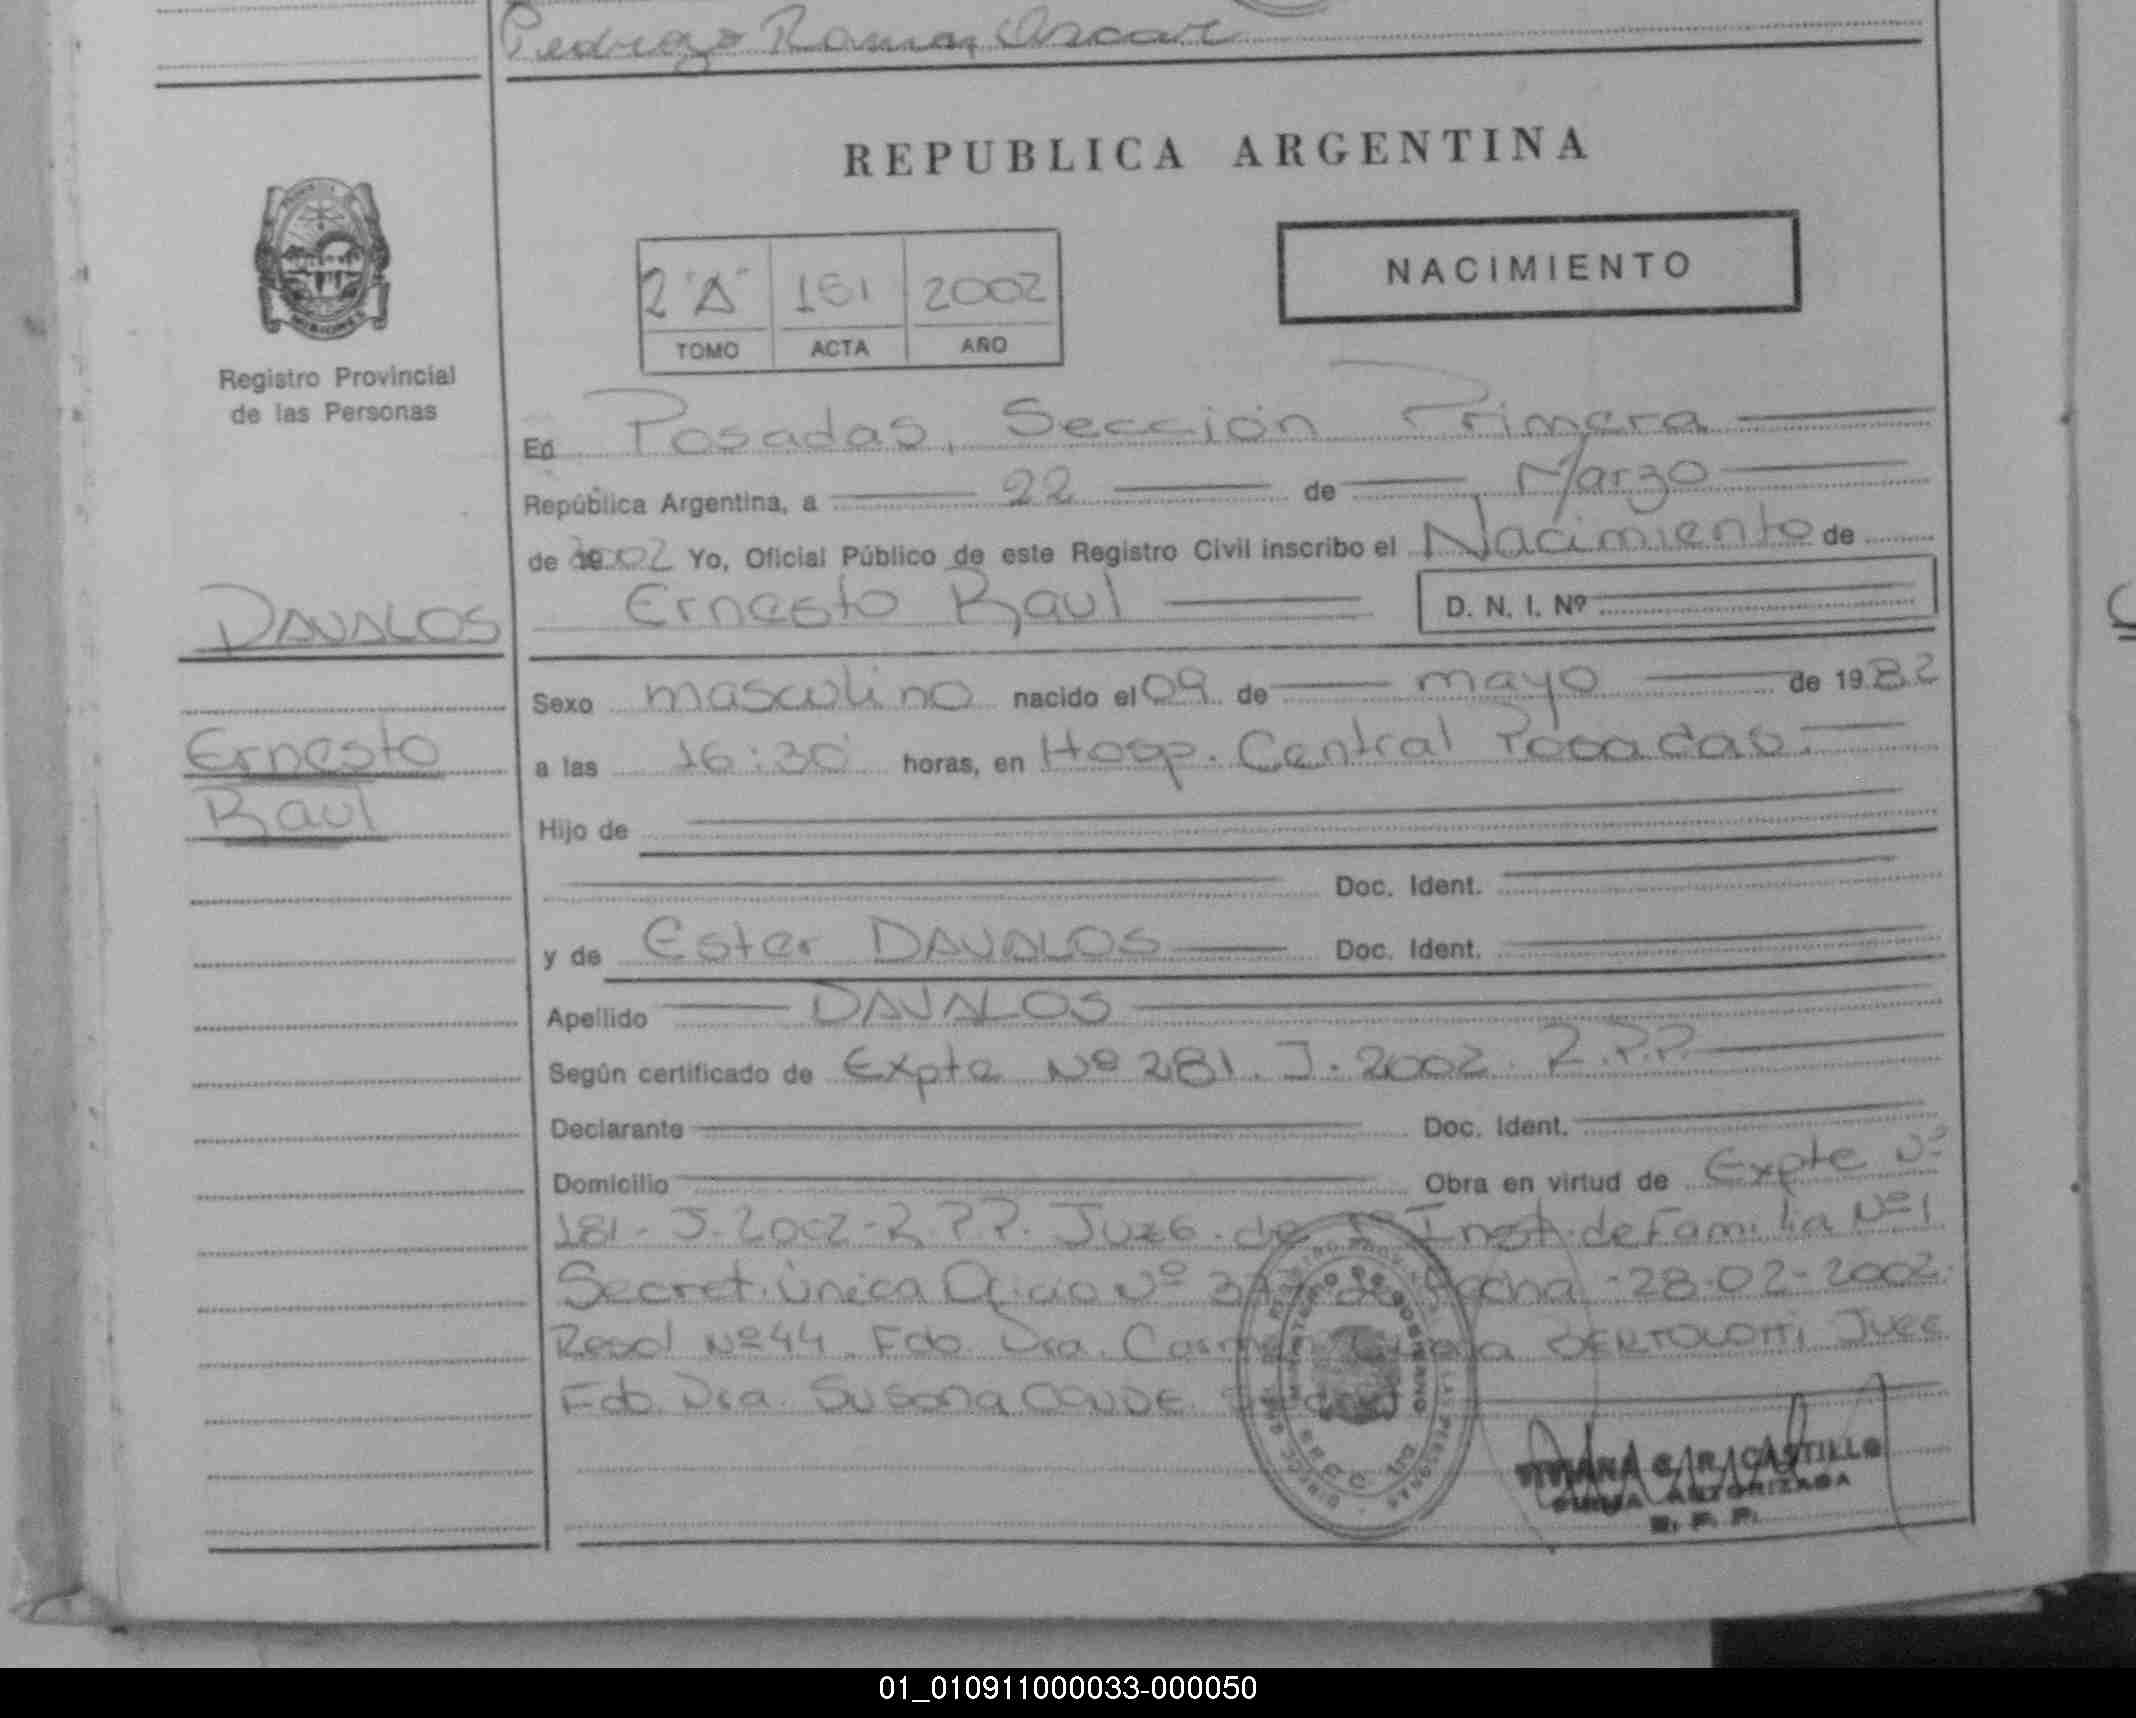 Pedrozo Ramon Oscar
REPUBLICA ARGENTINA
NACIMIENTO
2 "A" 151 2002
TOMO ACTA AÑO
MISIONES
Registro Provincial
de las Personas
En Posadas, Sección Primera
República Argentina, a 22 de Marzo
de 2002 Yo, Oficial Público de este Registro Civil inscribo el Nacimiento de
DAVALOS
Ernesto Raul D. N. I. Nº
Sexo masculino nacido el 09 de mayo de 1982
Ernesto
a las 16:30 horas, en Hosp. Central Posadas.
Raul
Hijo de
Doc. Ident.
y de Ester DAVALOS Doc. Ident.
Apellido DAVALOS
Según certificado de Expte Nº 281. J. 2002. R.P.P.
Declarante Doc. Ident.
Domicilio Obra en virtud de Expte Nº
181- J. 2002-R.P.P. Juzg. de 1º Inst. de Familia Nº 1
Secret. Única Oficio Nº de Fecha 28-02-2002.
Resol Nº 44 Fdo. Dra. Carmen BERTOLOTTI, Juez
Fdo. Dra. Susana CONDE.
CASTILLO
FIRMA AUTORIZADA
R. P. P.
01_010911000033-000050